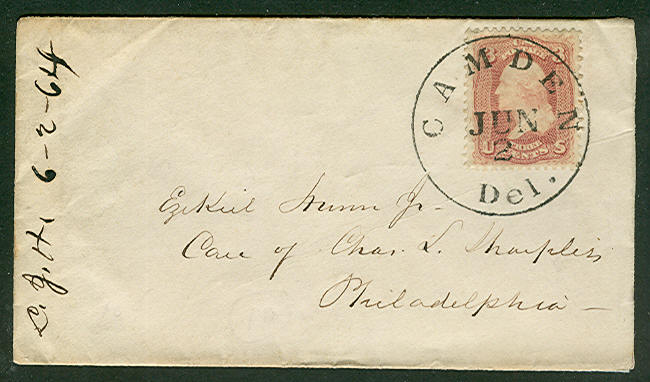 S. J. H. 6-2-64
3 3
CAMDEN
JUN
2
Del.
U THREE CENTS S
Ezekiel Hunn Jr-
Care of Chas. L. Sharpless
Philadelphia -